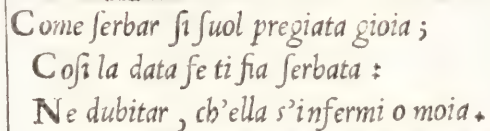 Come ſerbar ſi ſuol pregiata gioia ;
Coſi la data fe ti fia ſerbata :
Ne dubitar , ch'ella s'infermi o moia .